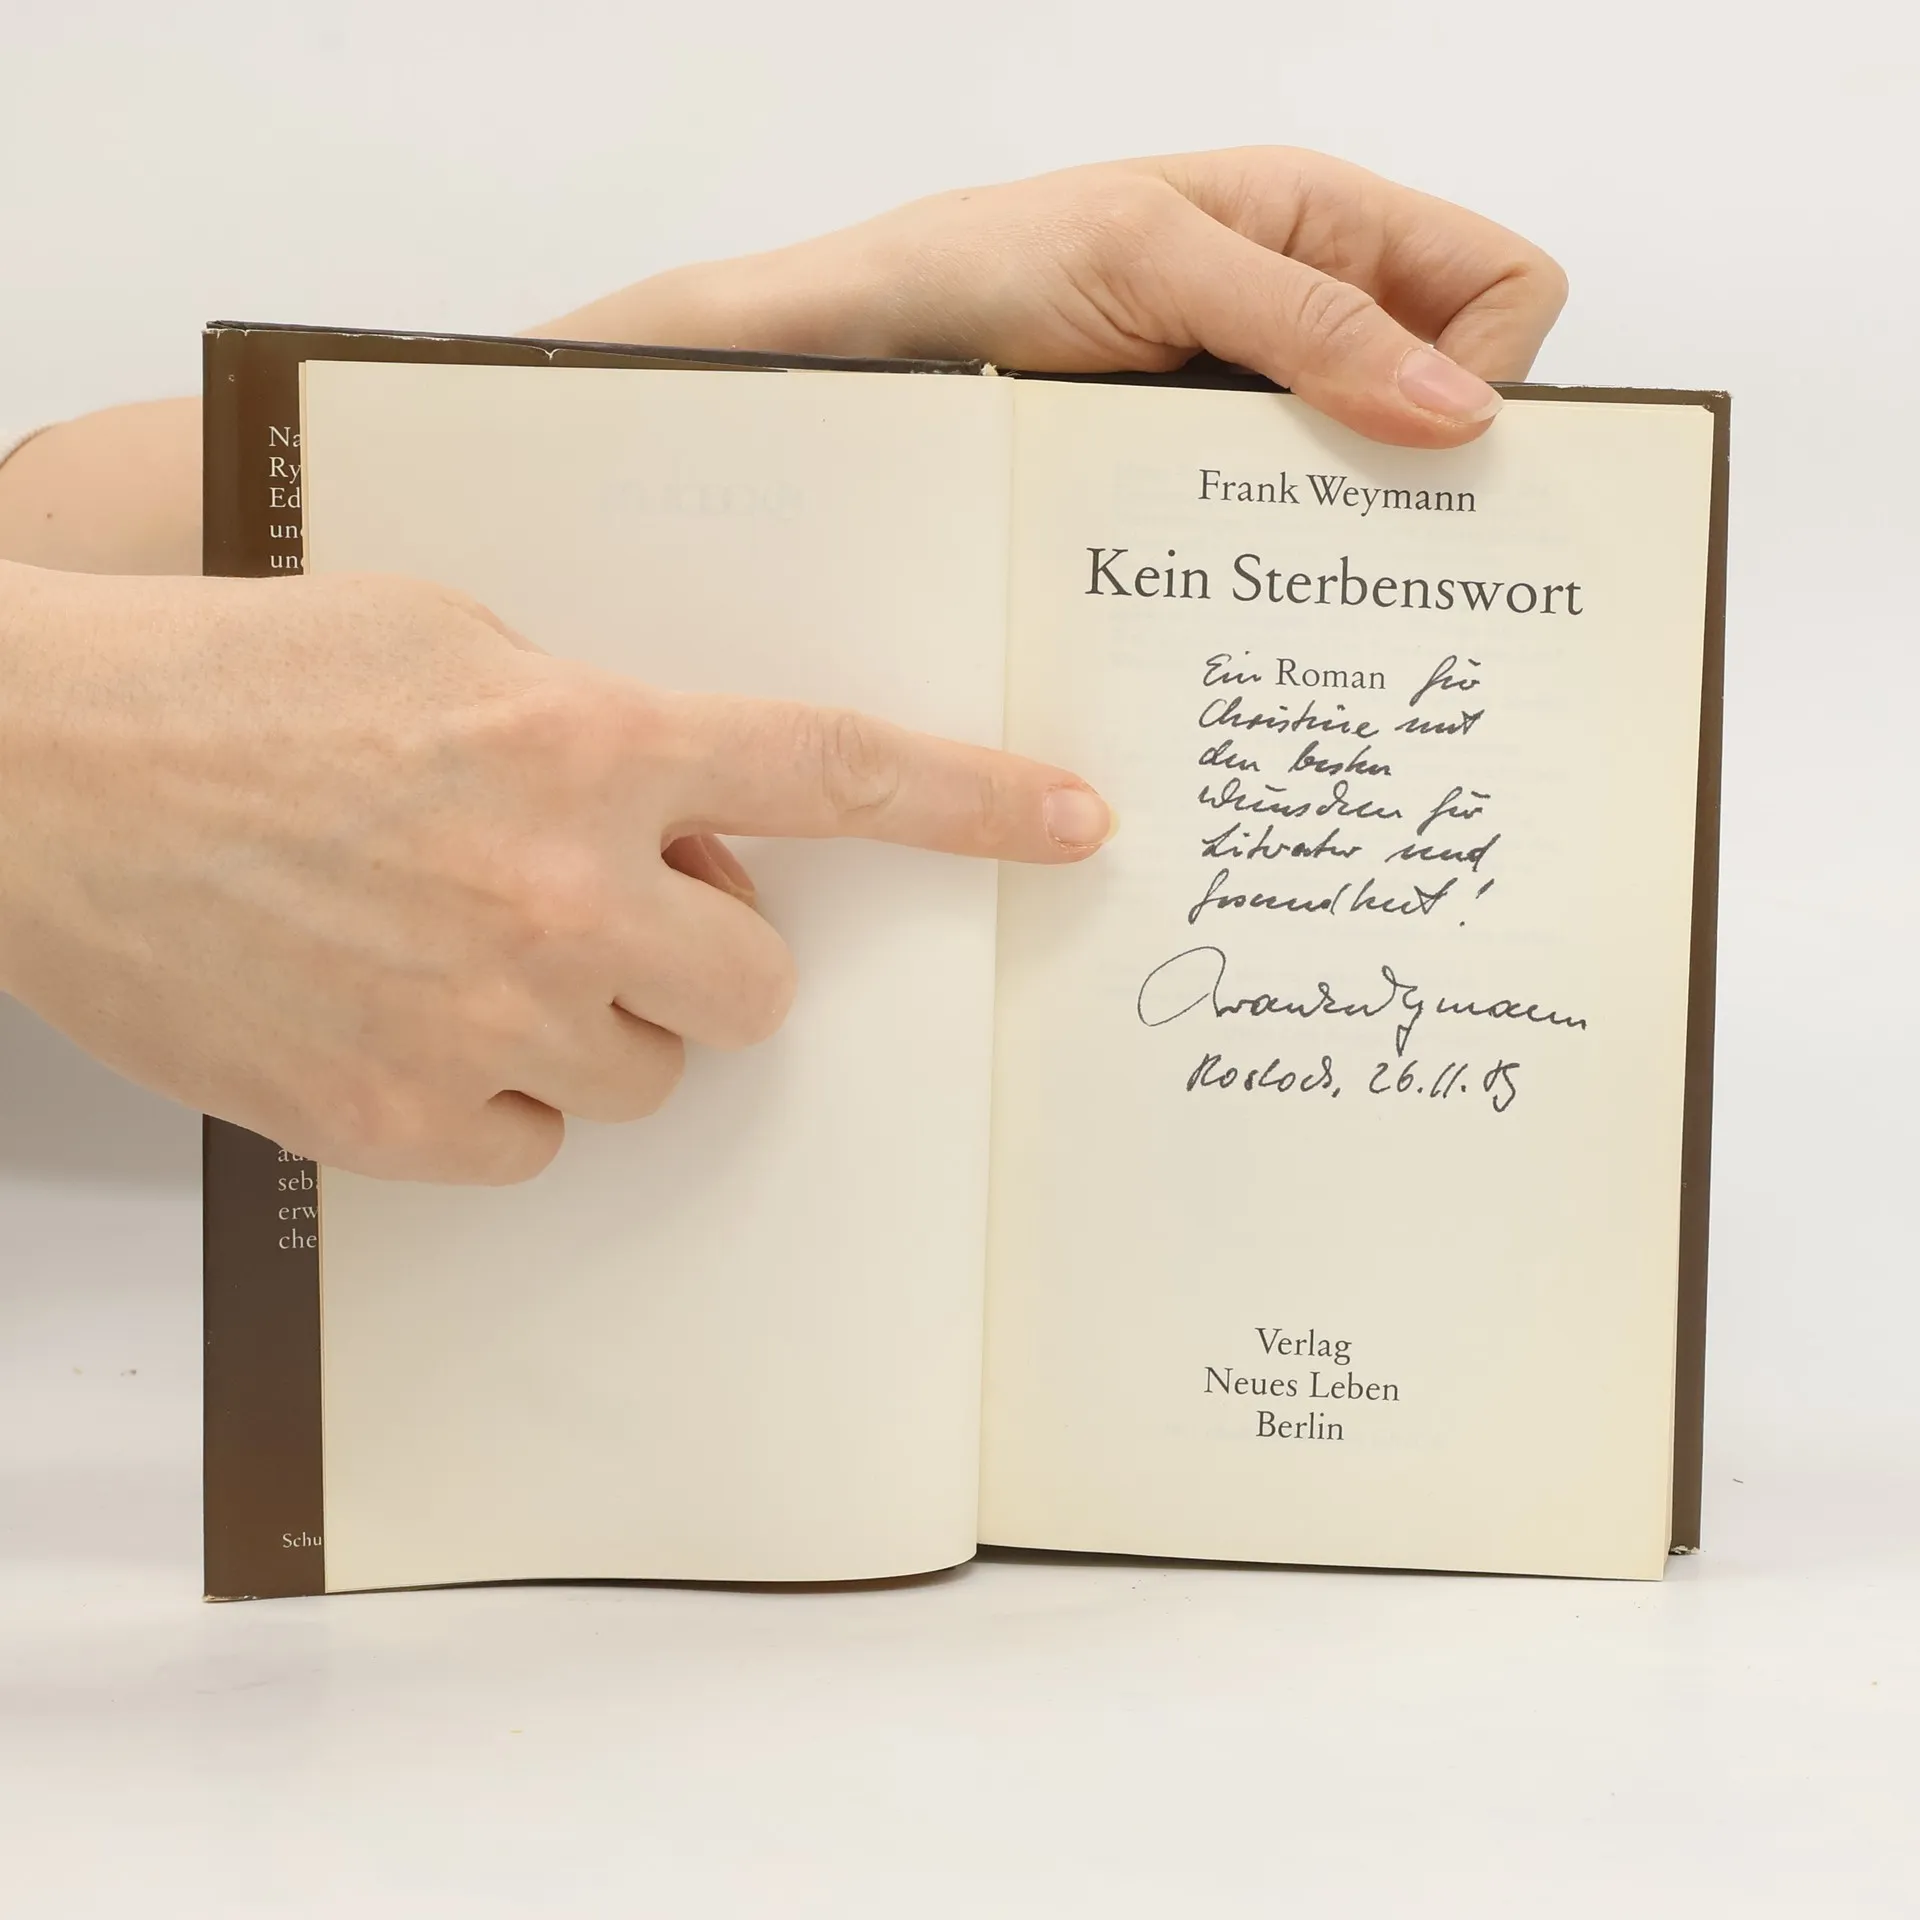 Na
Ry
Ed
und
und
au
seb
erw
che
Schu
Frank Weymann
Kein Sterbenswort
Ein Roman für
Christine mit
den besten
Wünschen für
Literatur und
Gesundheit!
Frank Weymann
Rostock, 26.11.85
Verlag
Neues Leben
Berlin